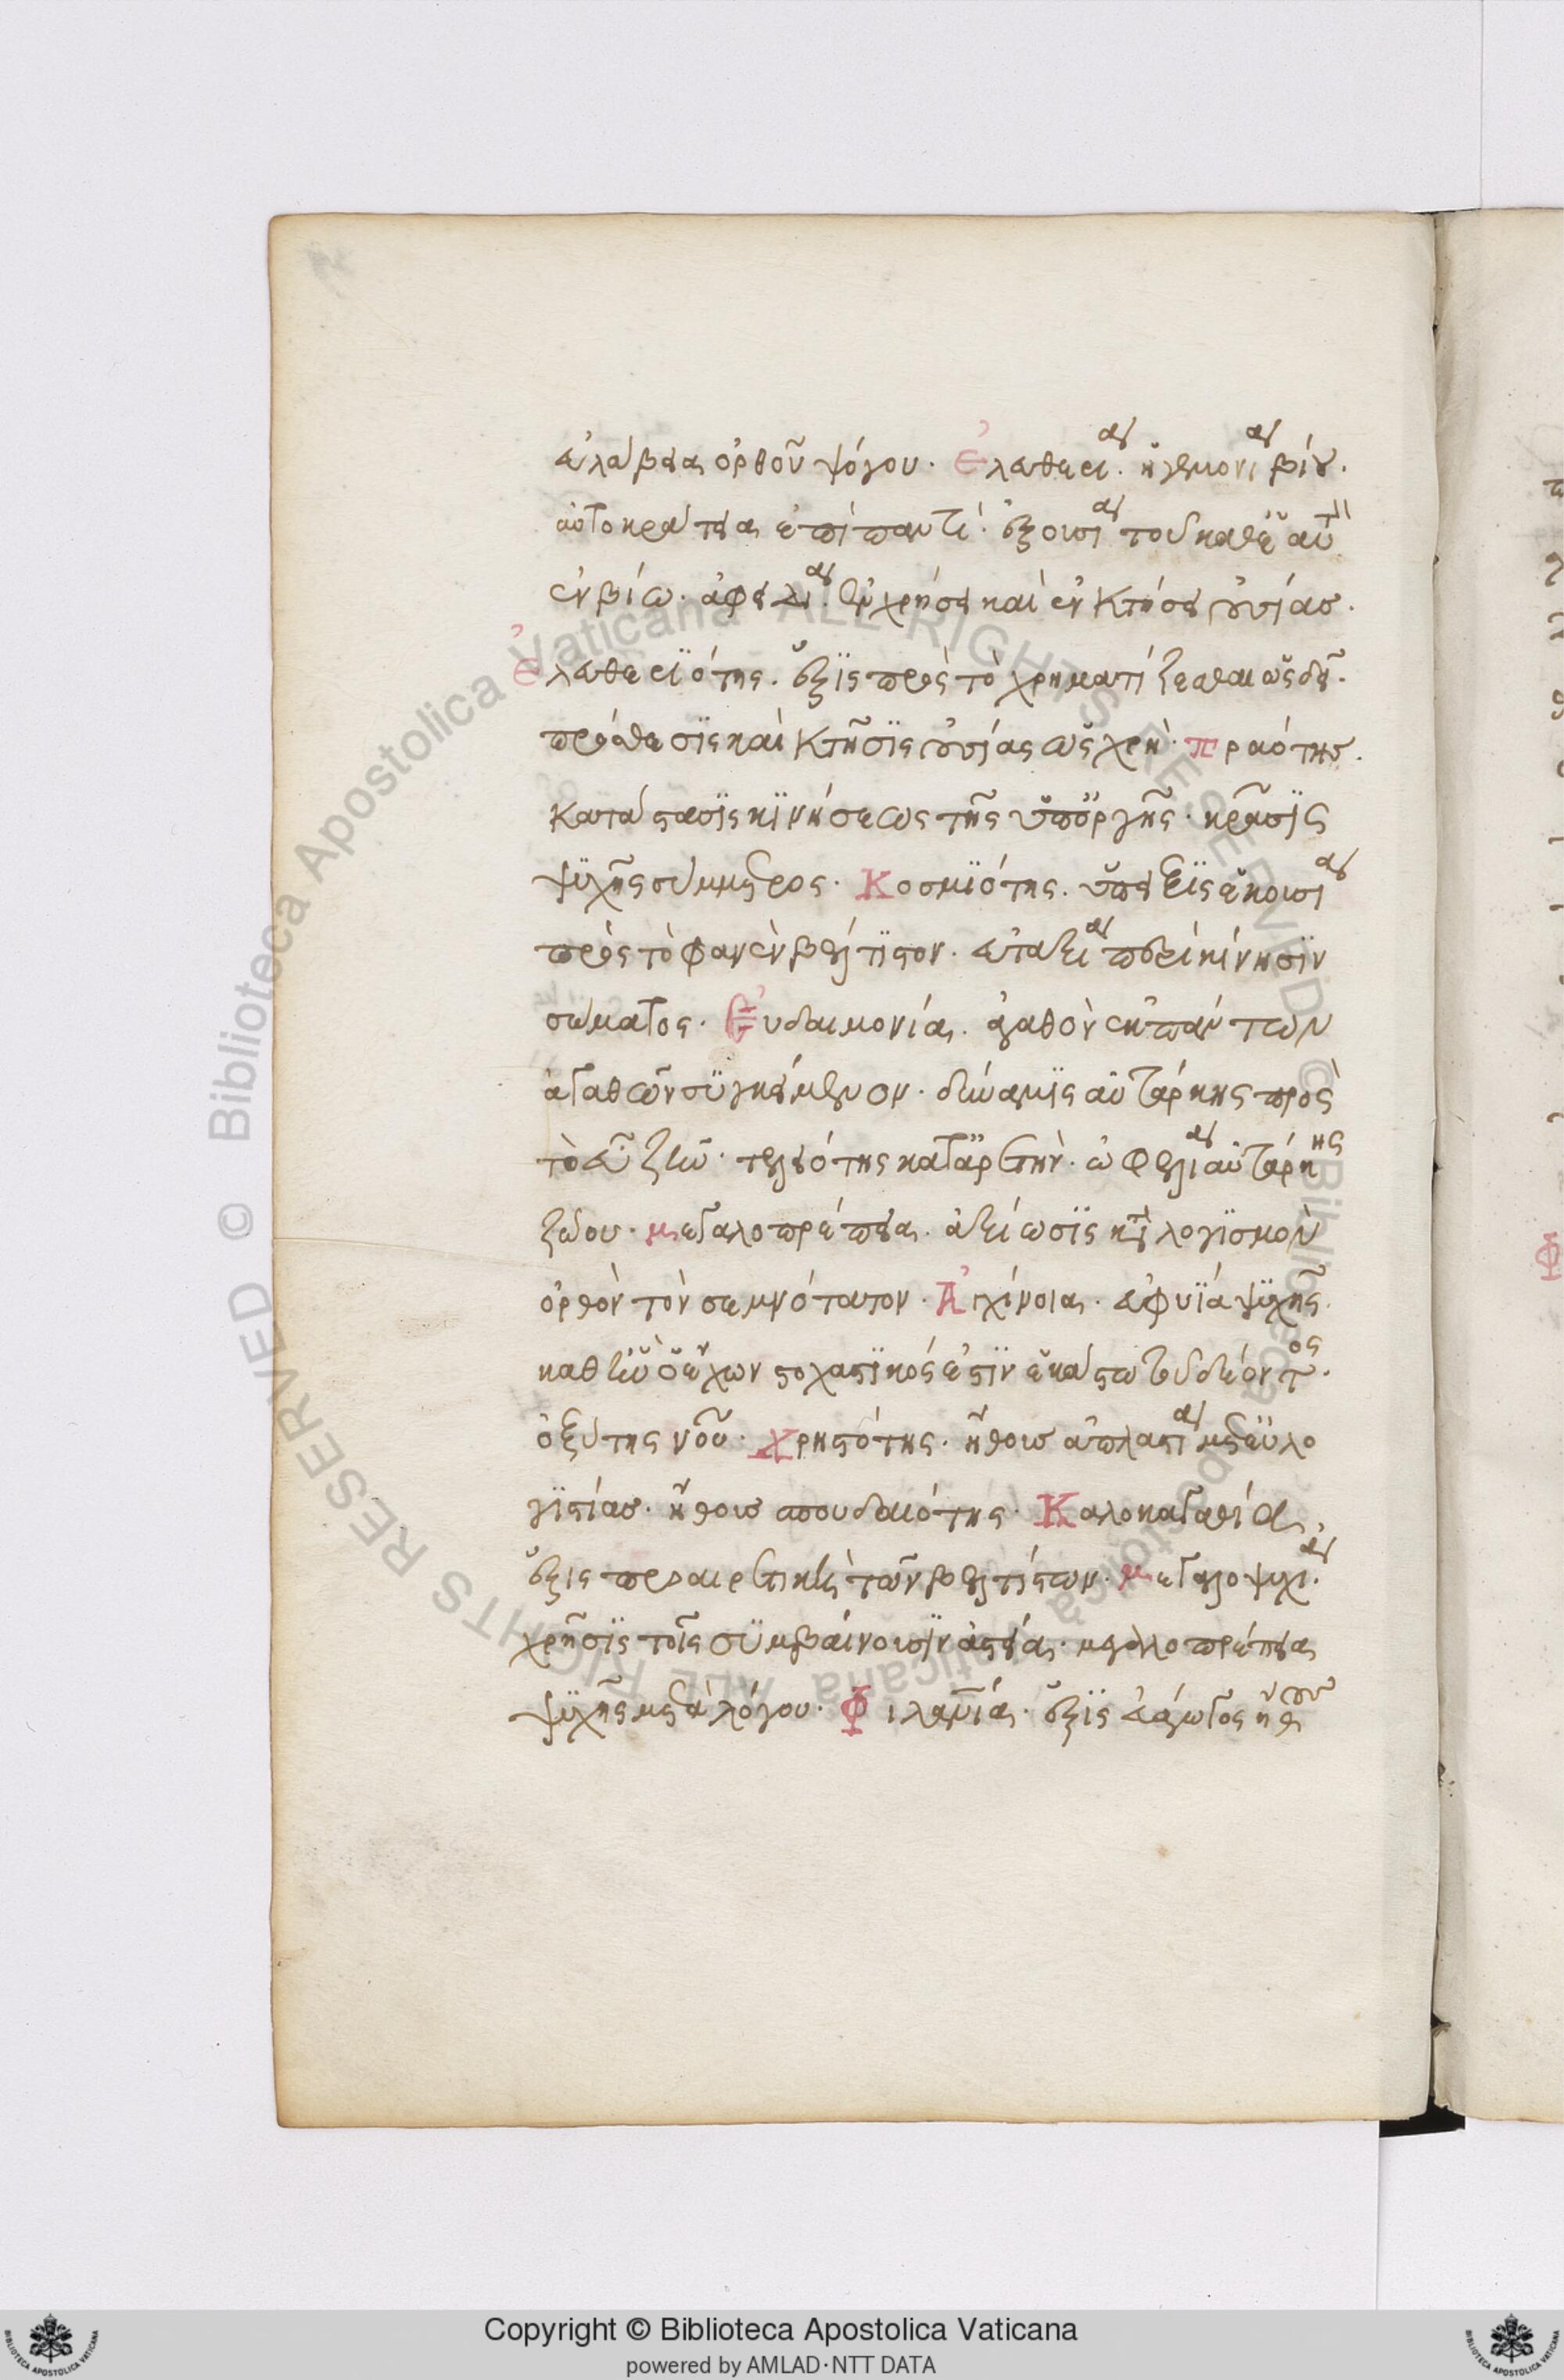 εὐλάβεια ὀρθοῦ ψόγου. ἐλευθερία. ἡγεμονία βίου.
αὐτοκράτεια ἐπὶ παντί. ἐξουσία τοῦ καθ' ἑαυτὸν
ἐν βίω. ἀφειδία ἐν χρήσει καὶ ἐν κτήσει οὐσίας.
ἐλευθεριότης. ἕξις πρὸς τὸ χρηματίζεσθαι ὡς δεῖ.
πρόσθεσις καὶ κτῆσις οὐσίας ὡς χρή. πραότης.
κατάστασις κινήσεως τῆς ὑπ' ὀργῆς. κρᾶσις
ψυχῆς σύμμετρος. Κοσμιότης. ὕπειξις ἑκουσία
πρὸς τὸ φανὲν βέλτιστον. εὐταξία περὶ κίνησιν
σώματος. Εὐδαιμονία. ἀγαθὸν ἐκ πάντων
ἀγαθῶν συγκείμενον. δύναμις αὐτάρκης πρὸς
τὸ εὖ ζῆν. τελειότης κατ' ἀρετήν. ὠφέλεια αὐτάρκης
ζώου. μεγαλοπρέπεια. ἀξίωσις κατὰ λογισμὸν
ὀρθὸν τὸν σεμνότατον. Ἀγχίνοια. εὐφυΐα ψυχῆς
καθ' ἣν ὁ ἔχων στοχαστικός ἐστιν ἑκάστω τοῦ δέοντος.
ὀξύτης νοῦ. Χρηστότης. ἤθους ἀπλαστία μετ' εὐλο
γιστίας. ἤθους σπουδαιότης. Καλοκαγαθία.
ἕξις προαιρετικὴ τῶν βελτίστων. μεγαλοψυχία.
χρῆσις τοῖς συμβαίνουσιν ἀστεία. μεγαλοπρέπεια
ψυχῆς μετὰ λόγου. Φιλανθρωπία. ἕξις εὐάγωγος ἤθους
Copyright © Biblioteca Apostolica Vaticana
powered by AMLAD·NTT DATA